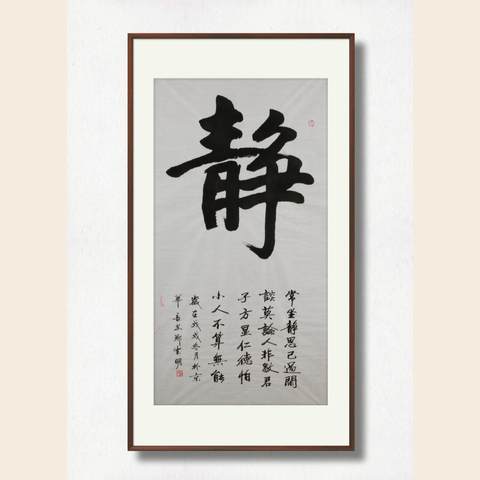 静
常坐静思己過閒
談莫論人非敬君
子方显仁德怕
小人不算無能
歲在戊戌冬月於京
華